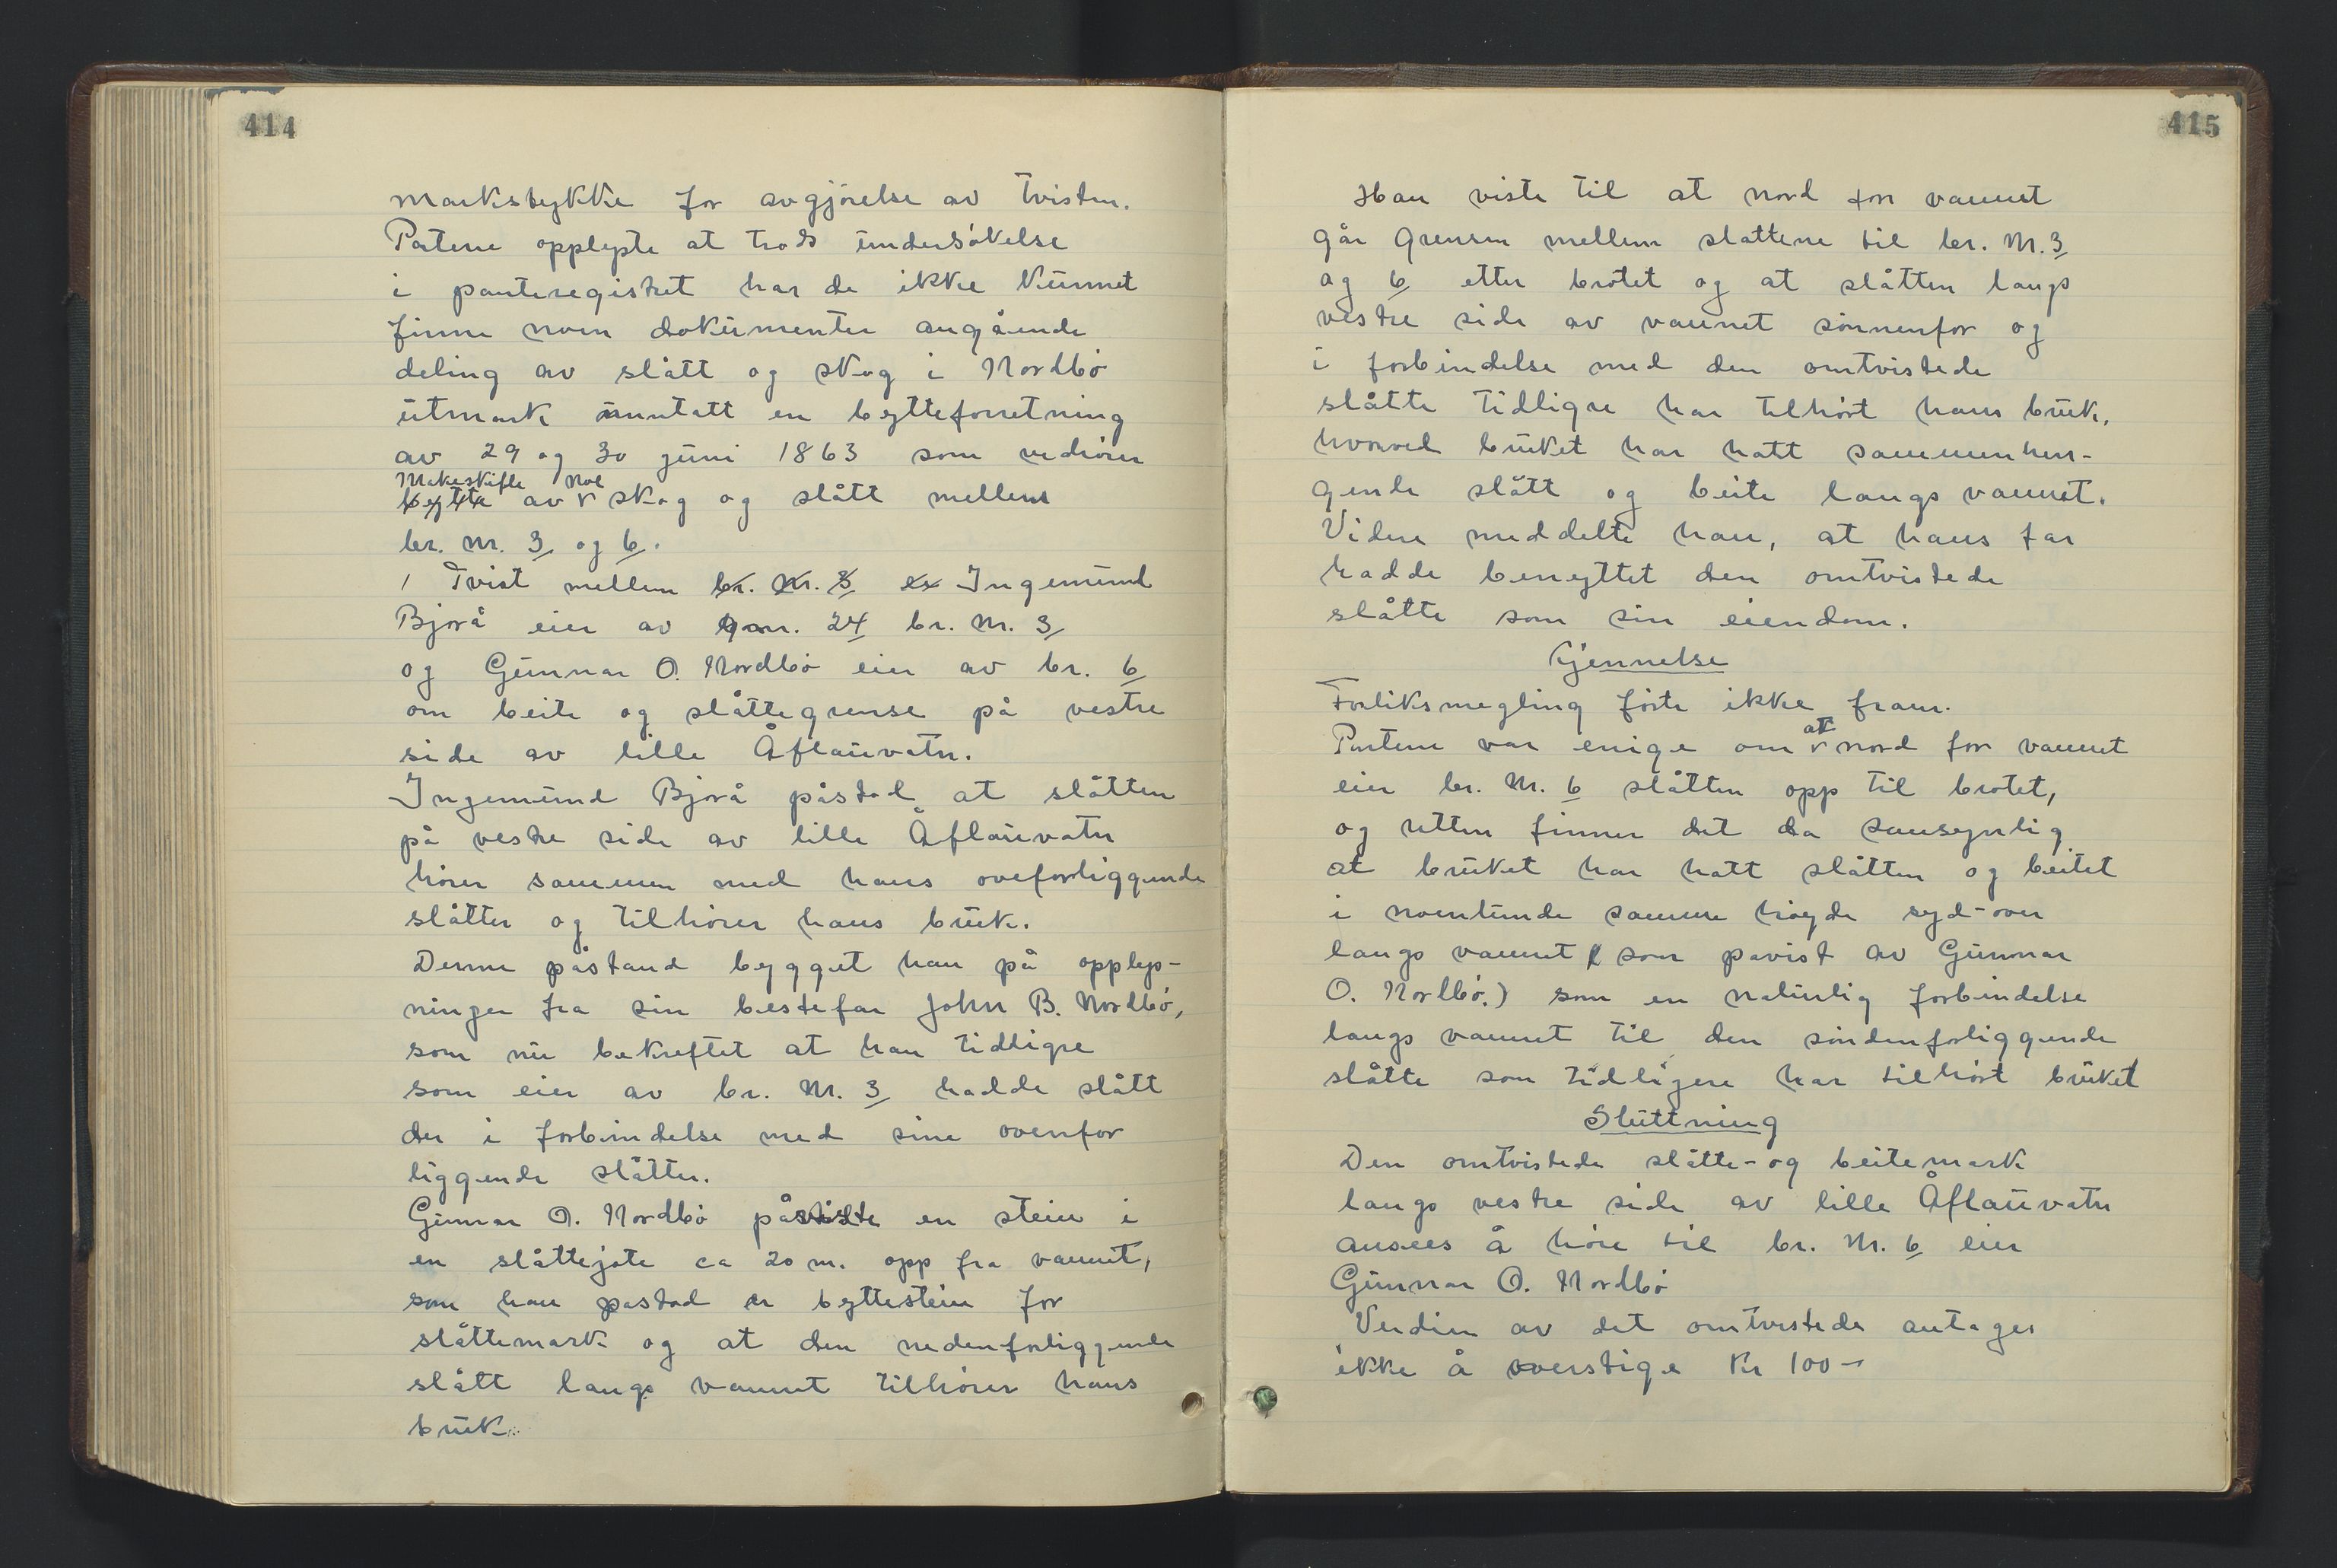 414
markstykke for avgjørelse av tvisten.
Partene opplyste at trods undersøkelse
i panteregistret har de ikke kunnet
finne noen dokumenter angående
deling av slått og skog i Nordbö
utmark unntatt en bytteforretning
av 29 og 30 juni 1863 som vedrører
Makeskifte noe
bytte av v skog og slått mellem
br. nr. 3 og 6.
1 Tvist mellem br. nr. 3 Ingemund
Bjorå eier av gnr. 24 br. nr. 3
og Gunnar O. Nordbö eier av br. 6
om beite og slåttegrense på vestre
side av lille Åflauvatn.
Ingemund Bjorå påstod at slåtten
på vestre side av lille Åflauvatn
hører sammen med hans oveforliggende
slåtter og tilhører hans bruk.
Denne påstand bygget han på opplys-
ninger fra sin bestefar John B. Nordbö,
som nu bekreftet at han tidligre
som eier av br. nr. 3 hadde slått
der i forbindelse med sine ovenfor
liggende slåtter.
Gunnar O. Nordbö påviste en stein i
en slåttejote ca 20 m. opp fra vannet,
som han pastod er byttestein for
slåttemark og at den nedenforliggende
slått langs vannet tilhører hans
bruk.
415
Han viste til at nord for vannet
går grensen mellem slattene til br. nr. 3
og 6 etter brotet og at slåtten langs
vestre side av vannet sønnenfor og
i forbindelse med den omtvistede
slåtte tidligre har tilhørt hans bruk,
hvorved bruket har hatt sammenhen-
gende slått og beite langs vannet.
Videre meddelte han, at hans far
hadde benyttet den omtvistede
slåtte som sin eiendom.
Kjennelse
Forliksmegling førte ikke fram.
at
Partene var enige om v nord for vannet
eier br. nr. 6 slåtten opp til brotet,
og retten finner det da sansynlig
at bruket har hatt slåtten og beitet
i noenlunde samme høyde syd-over
langs vannet ( som pavist av Gunnar
O. Nordbö.) som en naturlig forbindelse
langs vannet til den søndenforliggende
slåtte som tidligere har tilhørt bruket
Sluttning
Den omtvistede slåtte- og beitemark
langs vestre side av lille Åflauvatn
ansees å høre til br. nr. 6 eier
Gunnar O. Nordbö
Verdien av det omtvistede antages
ikke å overstige kr 100-